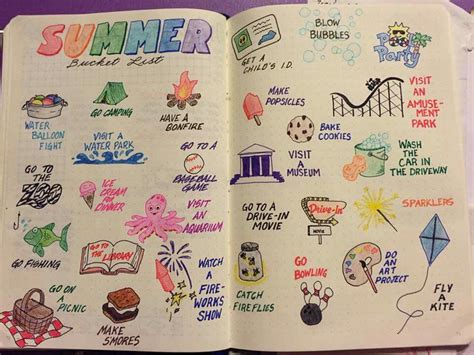 SUMMER
Bucket List
WATER
BALLOON
FIGHT
GO CAMPING
HAVE A
BONFIRE
VISIT A
WATER PARK
GO TO
THE
ZOO
ICE
CREAM
FOR
DINNER
GO TO A
BASEBALL
GAME
VISIT
AN
AQUARIUM
GO FISHING
GO TO
THE
LIBRARY
GO ON
A
PICNIC
MAKE
SMORES
WATCH
A
FIRE-
WORKS
SHOW
GET A
CHILD'S I.D.
BLOW
BUBBLES
Pool
Party
MAKE
POPSICLES
BAKE
COOKIES
VISIT
AN
AMUSE-
MENT
PARK
VISIT
A
MUSEUM
WASH
THE
CAR IN
THE DRIVEWAY
GO TO A
DRIVE-IN
MOVIE
Drive-In
MOVIE
SPARKLERS
CATCH
FIREFLIES
GO
BOWLING
DO
AN
ART
PROJECT
FLY
A
KITE